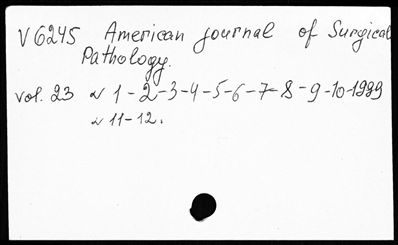 V6245 American journal of Surgical
Pathology.
vol. 23 N 1-2-3-4-5-6-7-8-9-10-1999
N 11-12.